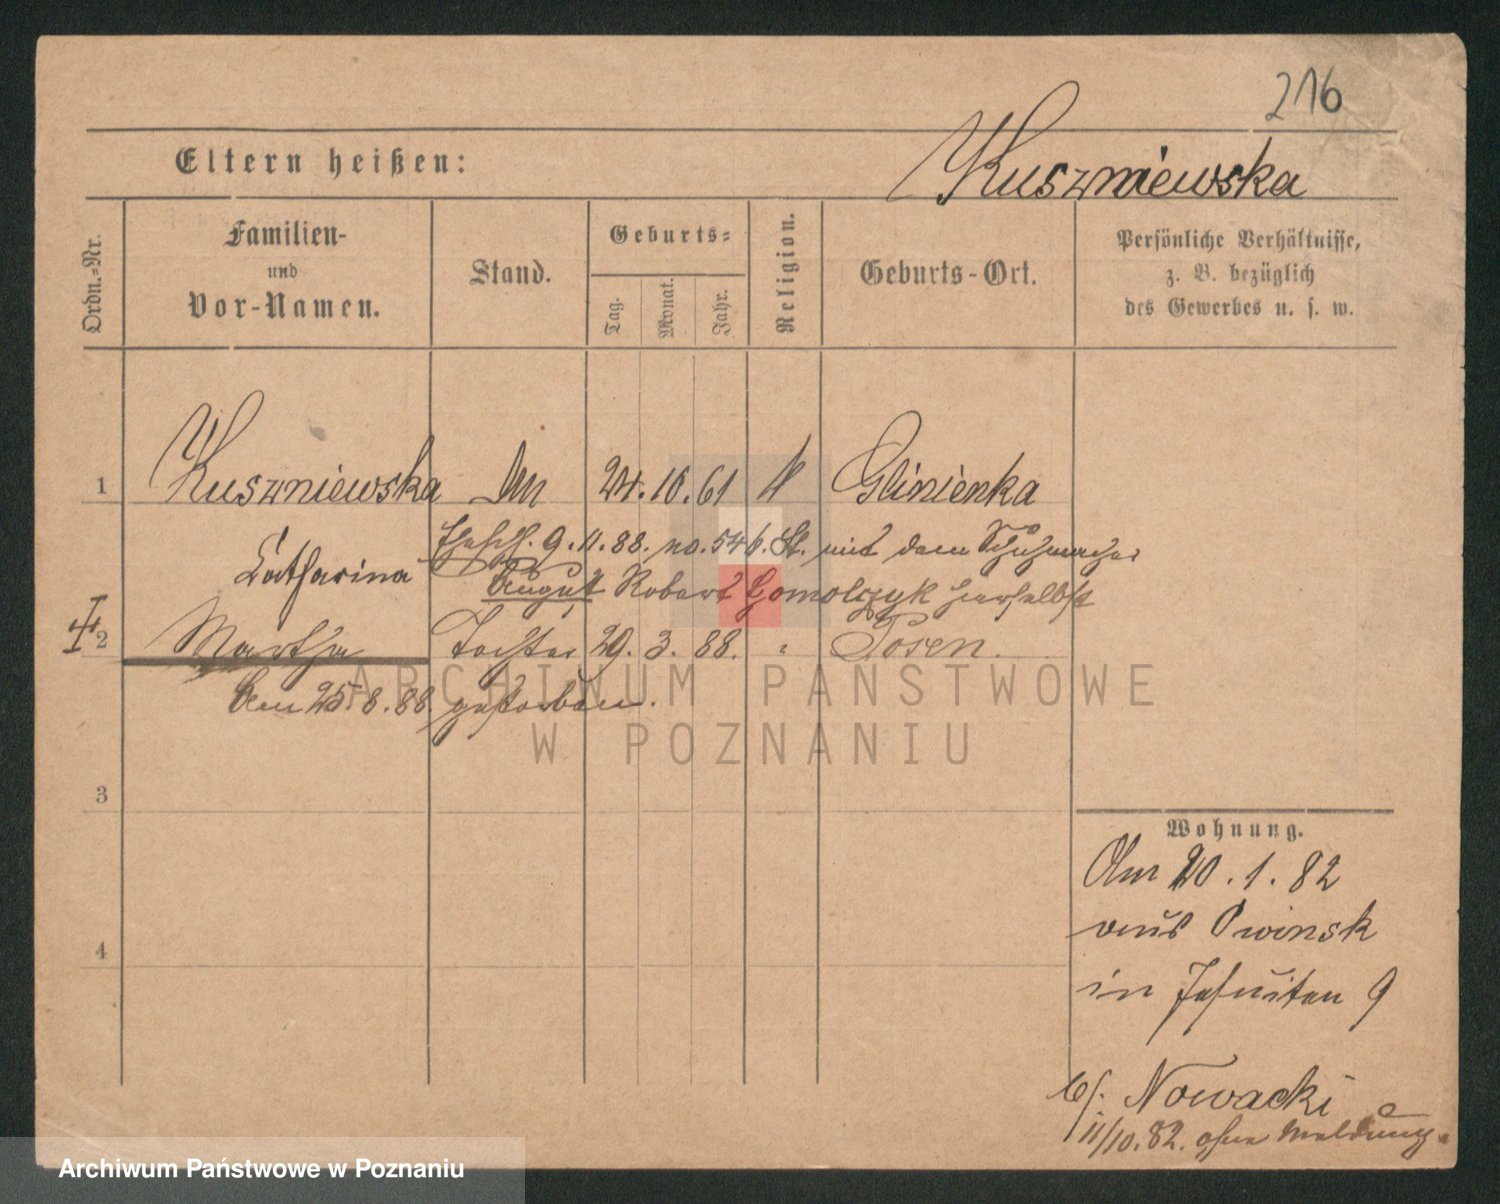 216
Eltern heißen:
Kuszniewska
Ordn.-Nr.
Familien-
und
Vor-Namen.
Stand.
Geburts-
Tag.
Monat.
Jahr.
Religion.
Geburts-Ort.
Persönliche Verhältnisse,
z. B. bezüglich
des Gewerbes u. s. w.
1 Kuszniewska 24. 10. 61 k Glinienka
Catharina
Ehesch. 9. 11. 88. no. 546. St. mit dem Schuhmacher
August Robert Gomolczyk hierselbst
2 Martha Tochter 29. 3. 88. " Posen.
Am 25. 8. 88 gestorben.
3
4
Wohnung.
Am 20. 1. 82
aus Owinsk
in Jesuiten 9
b/: Nowacki
11/10. 82. ohne Meldung.
ARCHIWUM PAŃSTWOWE
W POZNANIU
Archiwum Państwowe w Poznaniu